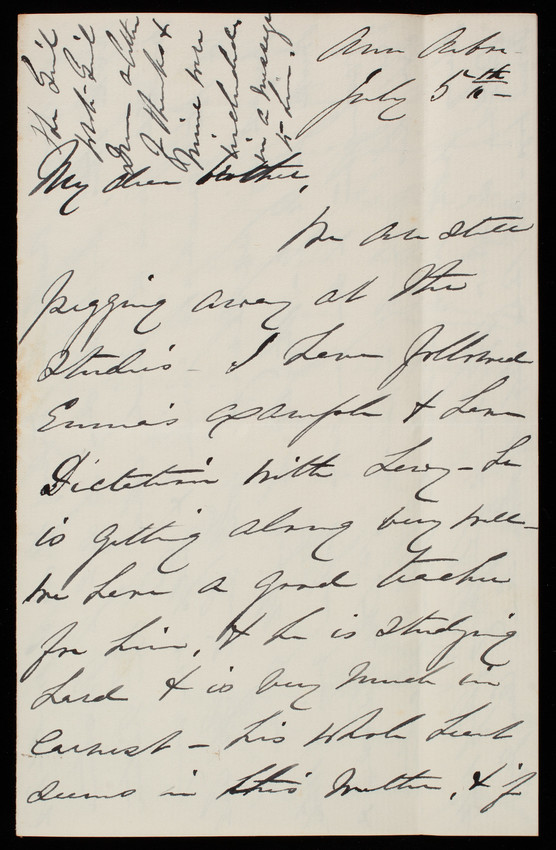 Ann Arbor
July 5th
My dear brother,
We are still
pegging away at the
studies - I have followed
Emma's example & have
Dictation with - He
is getting along very well -
We have a good teacher
for him, & he is studying
hard & is very much in
earnest - his whole heart
seems in this matter, & if
The Girl
wrote Girl
a letter
of thanks &
mine were
included
in a message
to him.